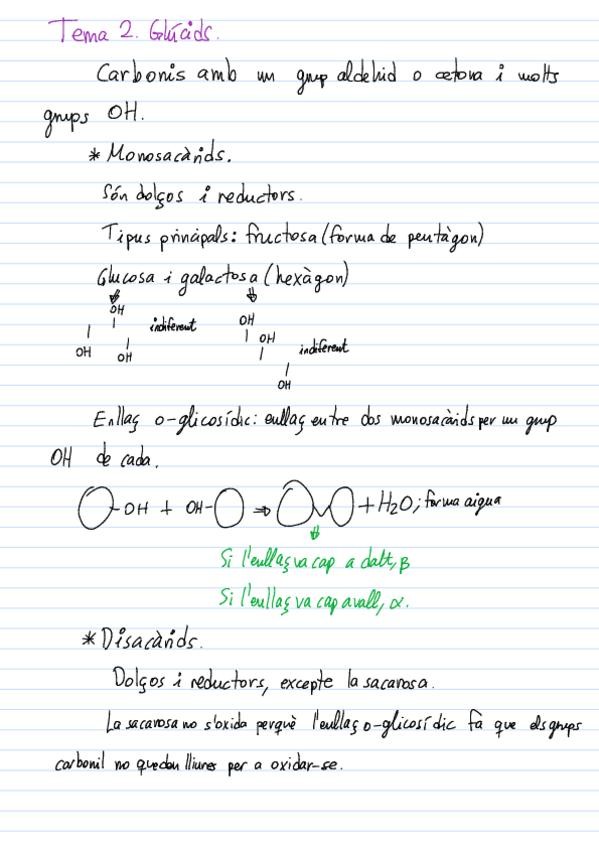 Tema 2. Glúcids.
Carbonis amb un grup aldehid o cetona i molts
grups OH.
* Monosacàrids.
Són dolços i reductors.
Tipus principals: fructosa (forma de pentàgon)
Glucosa i galactosa (hexàgon)
OH indiferent OH
OH OH OH indiferent
OH
Enllaç o-glicosídic: enllaç entre dos monosacàrids per un grup
OH de cada.
-OH + OH- ⇒ + H2O; forma aigua
Si l'enllaç va cap a dalt, β
Si l'enllaç va cap avall, α.
* Disacàrids.
Dolços i reductors, excepte la sacarosa.
La sacarosa no s'oxida perquè l'enllaç o-glicosídic fa que els grups
carbonil no quedau lliures per a oxidar-se.